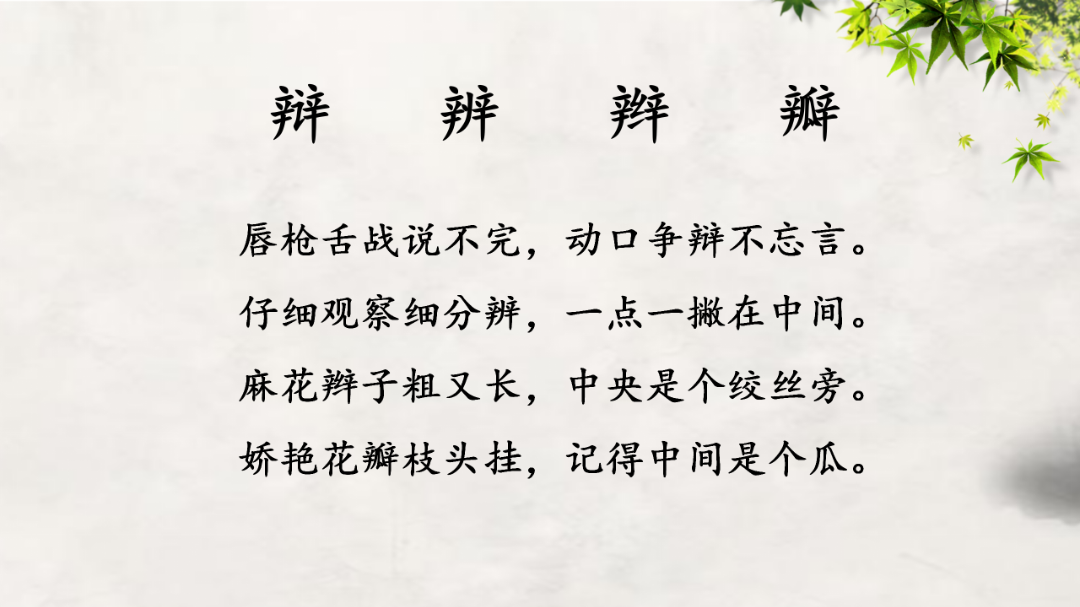 辩 辨 辫 瓣
唇枪舌战说不完，动口争辩不忘言。
仔细观察细分辨，一点一撇在中间。
麻花辫子粗又长，中央是个绞丝旁。
娇艳花瓣枝头挂，记得中间是个瓜。